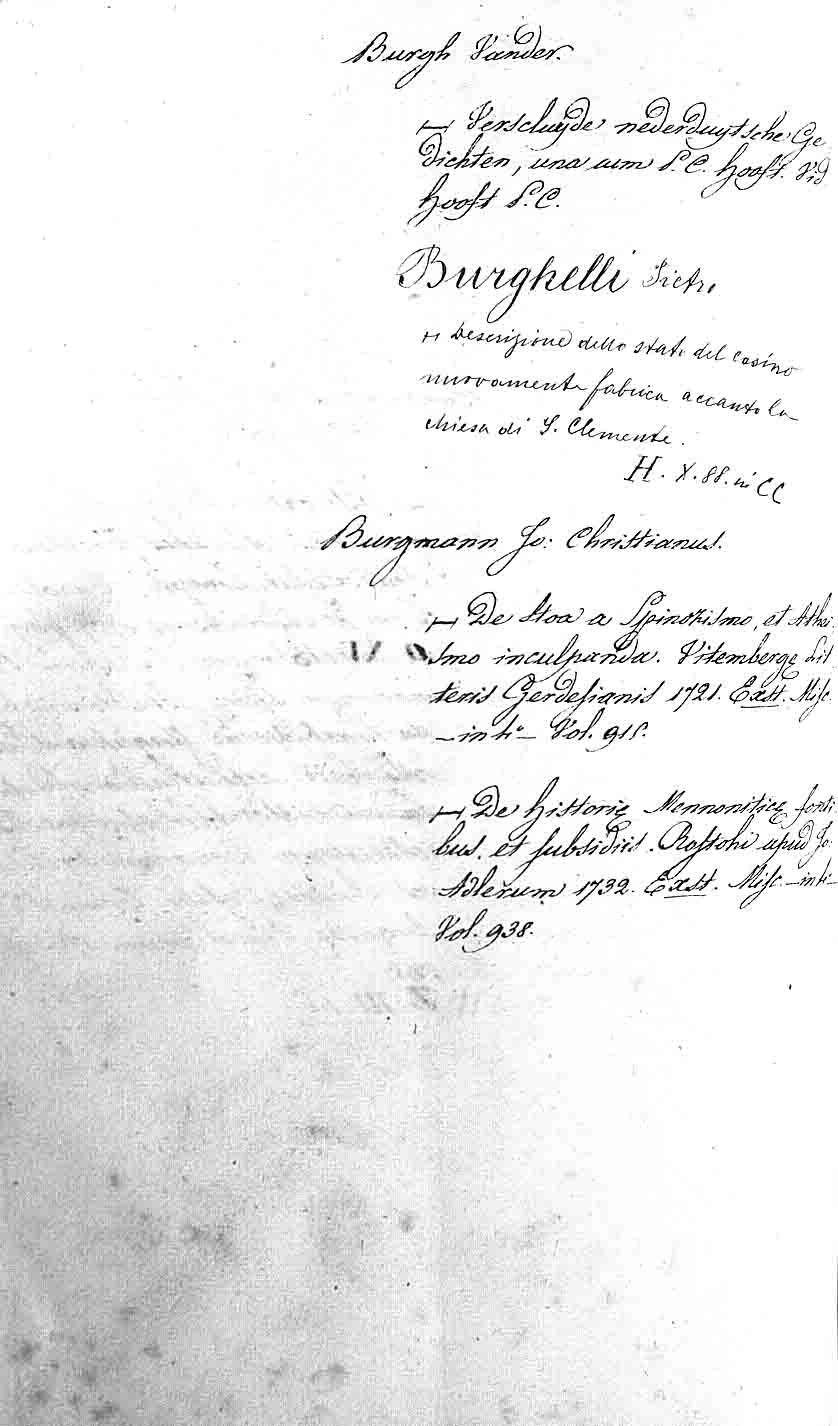 Burgh Vander.
— Verscluyde nederduytsche Ge
dichten, una cum P. C. Hooft. Vid
Hooft P. C.
Burghelli Pietro
— Descrizione dello stato del Casino
nuovamente fabrica accanto la
chiesa di S. Clemente.
H. X. 88. in CC
Burgmann Jo: Christianus.
— De Stoa a Spinozismo, et Athei
smo inculpanda. Vitembergę Lit
teris Gerdesianis 1721. Exst. Misc.
— in 4° — Vol. 915.
— De Historię Mennoniticę fonti
bus, et subsidiis. Rostohi apud Jo:
Adlerum 1732. Exst. Misc. — in 4° —
Vol. 938.